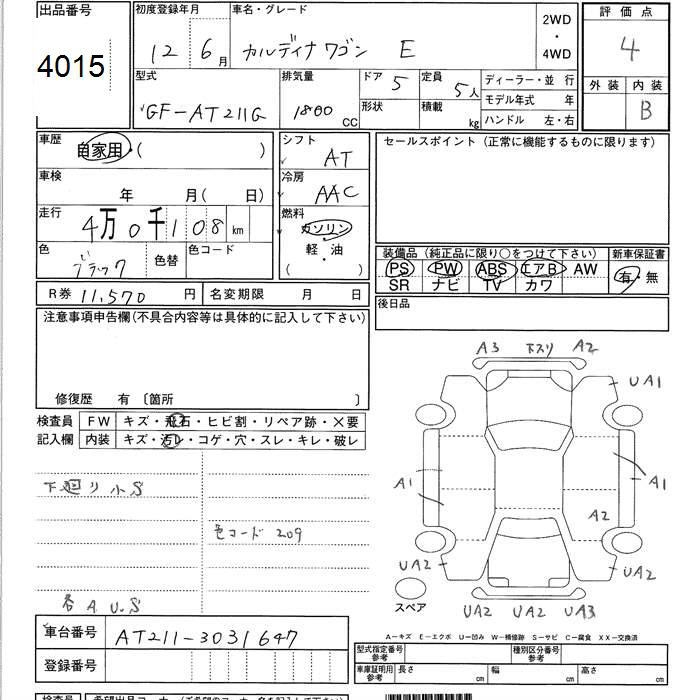 出品番号
4015
初度登録年月
12 6月
車名・グレード
カルディナ ワゴン E
2WD
・
4WD
評価点
4
外装 内装
B
型式
GF-AT211G
排気量
1800 CC
ドア 5
形状
定員 5人
積載 kg
ディーラー・並 行
モデル年式 年
ハンドル 左・右
車歴
自家用・( )
車検
年 月(日)
走行
4万0千108km
色
ブラック
色替
色コード
シフト
AT
冷房
AAC
燃料
ガソリン
軽・油
( )
セールスポイント (正常に機能するものに限ります)
装備品 (純正品に限り○をつけて下さい)
PS PW ABS エアB AW
SR ナビ TV カワ
新車保証書
有・無
後日品
R券 11,570 円
名変期限 月 日
注意事項申告欄(不具合内容等は具体的に記入して下さい)
修復歴 有 〔箇所 〕
検査員
記入欄
FW キズ・飛石・ヒビ割・リペア跡・X要
内装 キズ・汚レ・コゲ・穴・スレ・キレ・破レ
下廻り小S
色コード 209
各 A U.S
A3 下スリ A2
UA1
A1
A1
A2
UA2
UA2
スペア
UA2 UA2 UA3
A-キズ E-エクボ U-凹み W-補修跡 S-サビ C-腐食 XX-交換済
車台番号
AT211-3031647
登録番号
型式指定番号
参考
種別区分番号
参考
車庫証明用
参考
長さ cm
幅 cm
高さ cm
検査員
希望出品コーナー(ご希望のコーナー名を記入下さい)